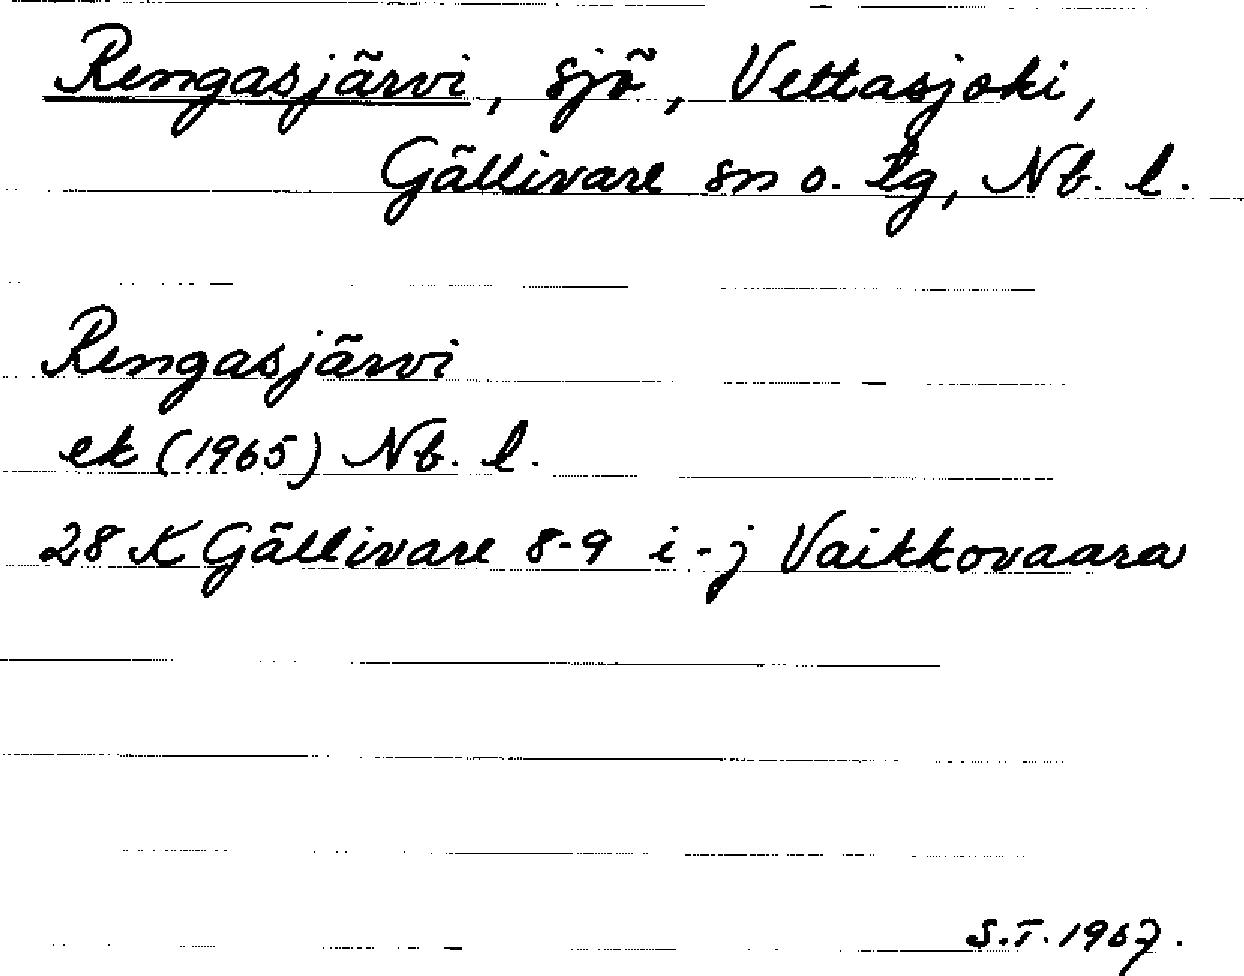 Rengasjärvi, sjö, Vettasjoki,
Gällivare sn o. tg, Nb. l.
Rengasjärvi
ek (1965) Nb. l.
28 K Gällivare 8-9 i-j Vaikkovaara
S.T. 1967.